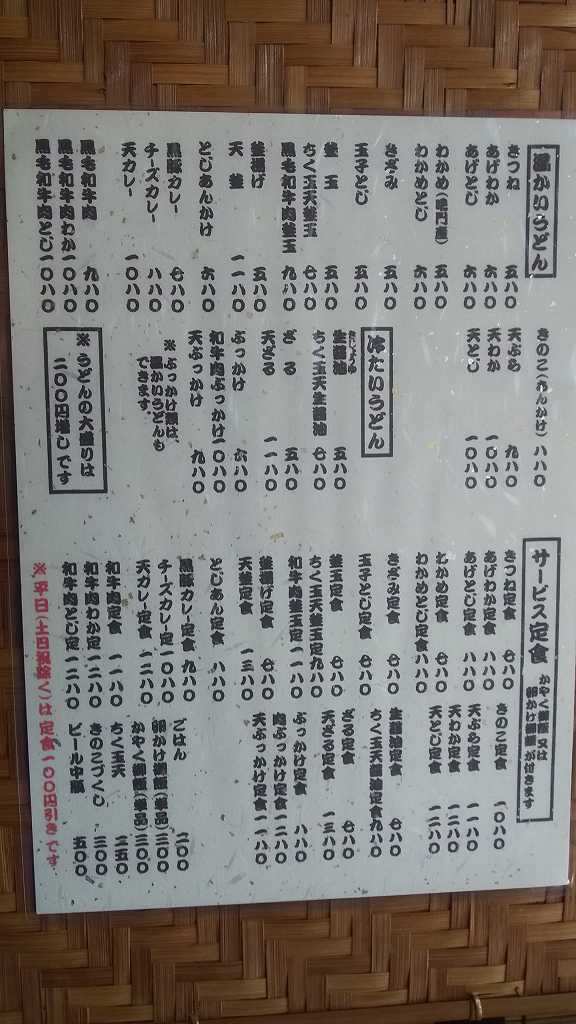 温かいうどん
きつね 五八〇
あげわか 六八〇
あげとじ 六八〇
わかめ(鳴門産) 五八〇
わかめとじ 六八〇
きざみ 五八〇
玉子とじ 五八〇
釜玉 五八〇
ちく玉天釜玉 七八〇
黒毛和牛肉釜玉 九八〇
釜揚げ 五八〇
天釜 一一八〇
とじあんかけ 六八〇
黒豚カレー 七八〇
チーズカレー 八八〇
天カレー 一〇八〇
黒毛和牛肉 九八〇
黒毛和牛肉わか 一〇八〇
黒毛和牛肉とじ 一〇八〇
きのこ(あんかけ) 八八〇
天ぷら 九八〇
天わか 一〇八〇
天とじ 一〇八〇
冷たいうどん
生醤油 五八〇
ちく玉天生醤油 七八〇
ざる 五八〇
天ざる 一一八〇
ぶっかけ 六八〇
和牛肉ぶっかけ 一〇八〇
天ぶっかけ 九八〇
※ぶっかけ類は、
温かいうどんも
できます。
※うどんの大盛りは
二〇〇円増しです
サービス定食
かやく御飯又は
卵かけ御飯が付きます
きつね定食 七八〇
あげわか定食 八八〇
あげとじ定食 八八〇
わかめ定食 七八〇
わかめとじ定食 八八〇
きざみ定食 七八〇
玉子とじ定食 七八〇
釜玉定食 七八〇
ちく玉天釜玉定 九八〇
和牛肉釜玉定 一一八〇
釜揚げ定食 七八〇
天釜定食 一三八〇
とじあん定食 八八〇
黒豚カレー定食 九八〇
チーズカレー定 一〇八〇
天カレー定食 一二八〇
和牛肉定食 一一八〇
和牛肉わか定 一二八〇
和牛肉とじ定 一二八〇
きのこ定食 一〇八〇
天ぷら定食 一一八〇
天わか定食 一二八〇
天とじ定食 一二八〇
生醤油定食 七八〇
ちく玉天醤油定食 九八〇
ざる定食 七八〇
天ざる定食 一三八〇
ぶっかけ定食 八八〇
肉ぶっかけ定食 一二八〇
天ぶっかけ定食 一一八〇
ごはん 二〇〇
卵かけ御飯(単品) 三〇〇
かやく御飯(単品) 三〇〇
ちく玉天 二五〇
きのこづくし 三〇〇
ビール中瓶 五〇〇
※平日(土日祝除く)は定食一〇〇円引きです